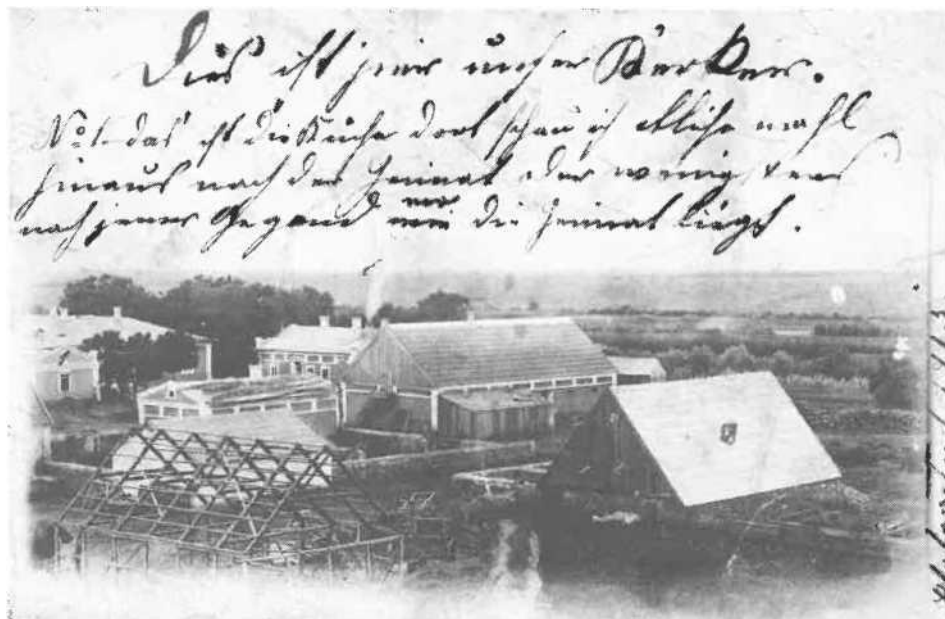 Dies ist hier unser Kerker.
No 1. das ist die Küche dort schau ich etliche mahl
hinaus nach der Heimat oder wenigstens
nach jener Gegend wo die Heimat liegt.